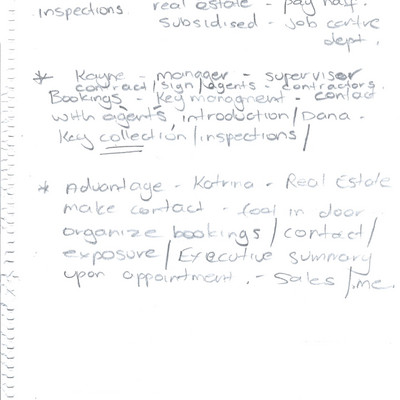 inspections. real estate - pay half.
subsidised - job centre
dept.
* Kayne - manager - supervisor
contract/sign/agents - contractors.
Bookings - Key managment - contact
with agents, introduction/Dana -
Key collection/inspections/
* Advantage - Katrina - Real Estate
make contact - foot in door
organize bookings/contact/
exposure/Executive summary
upon appointment. - Sales/me.